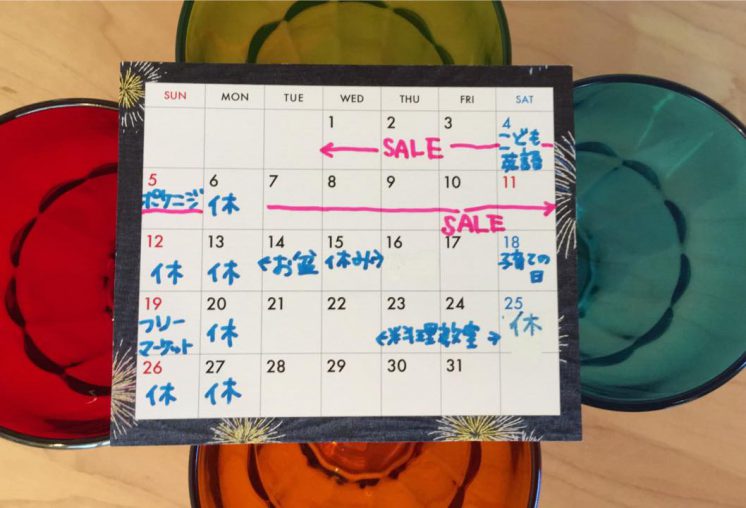 SUN MON TUE WED THU FRI SAT
1 2 3 4
← SALE こども
英語
5 6 7 8 9 10 11
ポケニジ 休 SALE →
12 13 14 15 16 17 18
休 休 ←お盆 休み→ 子育ての
日
19 20 21 22 23 24 25
フリー
マーケット 休 ←料理教室→ 休
26 27 28 29 30 31
休 休